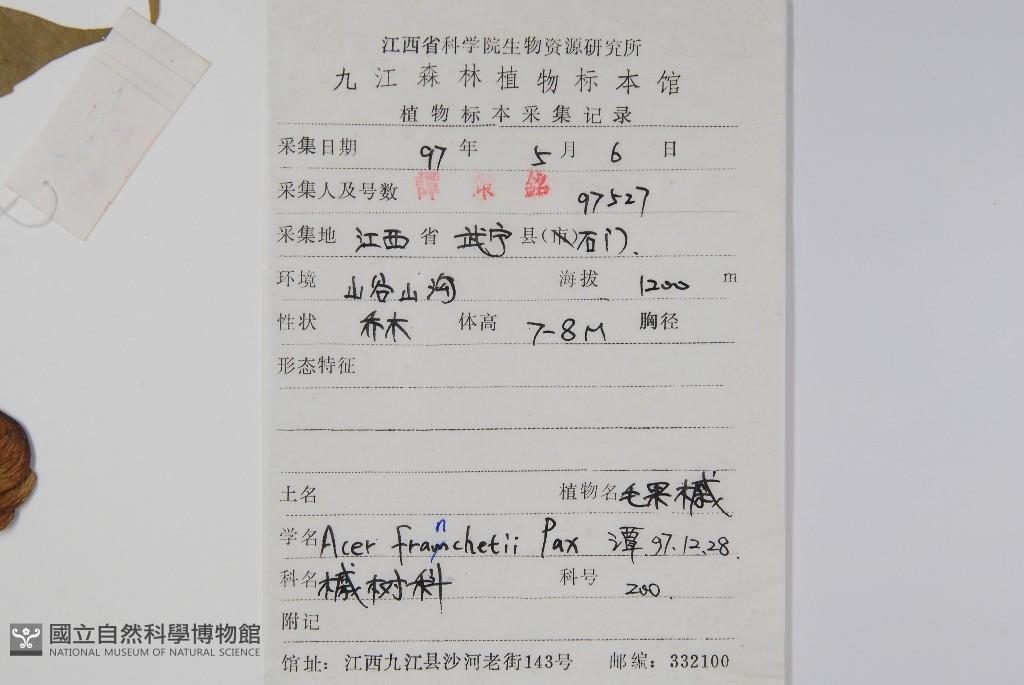 江西省科学院生物资源研究所
九江森林植物标本馆
植物标本采集记录
采集日期 97 年 5 月 6 日
采集人及号数 譚策銘 97527
采集地 江西 省 武宁 县(市)石门.
环境 山谷山沟 海拔 1200 m
性状 乔木 体高 7-8M 胸径
形态特征
土名 植物名 毛果槭
学名 Acer franchetii Pax 谭 97.12.28.
科名 槭树科 科号 200.
附记
馆址: 江西九江县沙河老街143号 邮编: 332100
國立自然科學博物館
NATIONAL MUSEUM OF NATURAL SCIENCE